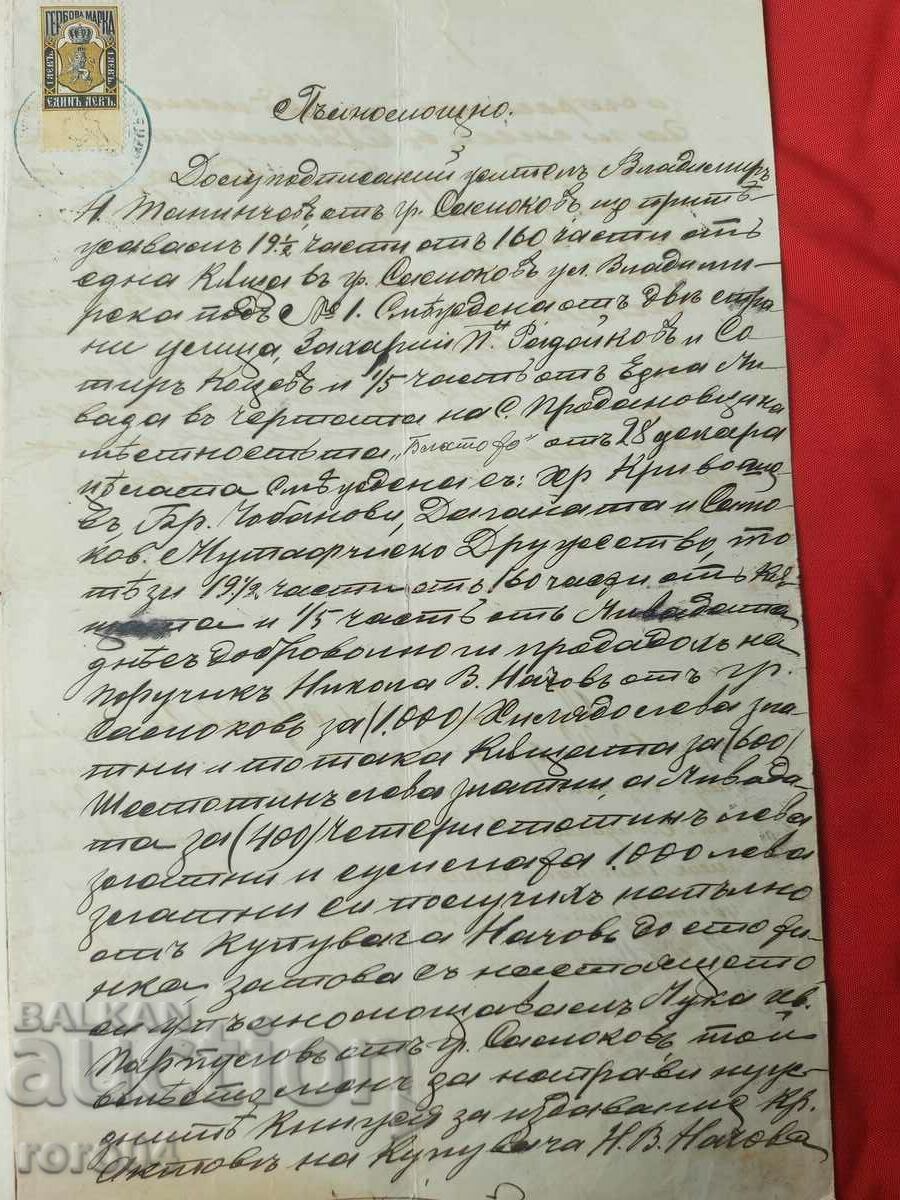 ГЕРБОВА МАРКА
1 ЛЕВЪ. 1 ЛЕВЪ.
ЕДИНЪ ЛЕВЪ.
Пълномощно.
Долуподписаний учителъ Владимиръ
Н. отъ гр. Самоковъ що притѣ-
жавамъ 19½ части отъ 160 части отъ
една Кѫща въ гр. Самоковъ ул. Владими-
рска подъ №1. Смѣждена отъ двѣ стра-
ни улица, Захарий П. Радойковъ и Со-
тиръ Коцевъ и 1/5 часть отъ Една Ли-
вада въ чертата на с. Продановци на
мѣстностьта „Блатофо" отъ 28 декара
цѣлата Смѣждена съ: хр.
Бр. Чобанови, Долапата и Само-
ков. Мутафчиско Дружество, то
тѣзи 19½ части отъ 160 части отъ Кѫ-
щата и 1/5 часть отъ Ливадата
днесъ доброволно ги продадохъ на
поручикъ Никола В. Начовъ отъ гр.
Самоковъ за (1.000) Хилядо лева зла-
тни и то така Кѫщата за (600)
Шестотинъ лева златни, а Ливада-
та за (400) Четеристотинъ лева
златни и сумата 1.000 лева
златни си получихъ напълно
отъ Купувача Начовъ до стоти-
нка затова съ настоящето
си упълномощавамъ Лука Ив.
отъ гр. Самоковъ той
вмѣсто менъ за направи нуж-
дните Книжа за издавание Кр.
Актовъ на Купувача Н. В. Начова
BALKAN
auction